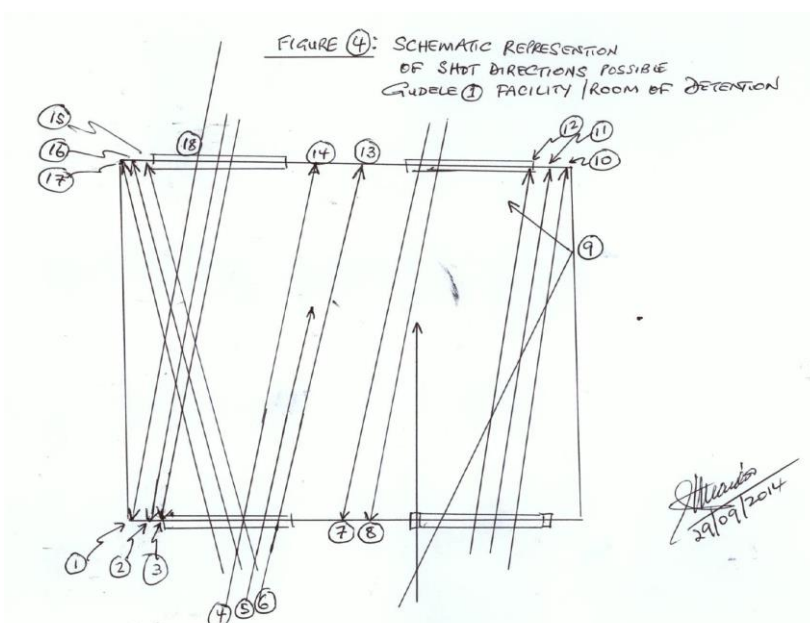 FIGURE ④: SCHEMATIC REPRESENTION
OF SHOT DIRECTIONS POSSIBLE
GUDELE ① FACILITY / ROOM OF DETENTION
⑮
⑯
⑰
⑱
⑭
⑬
⑫
⑪
⑩
⑨
①
②
③
④
⑤
⑥
⑦
⑧
29/09/2014